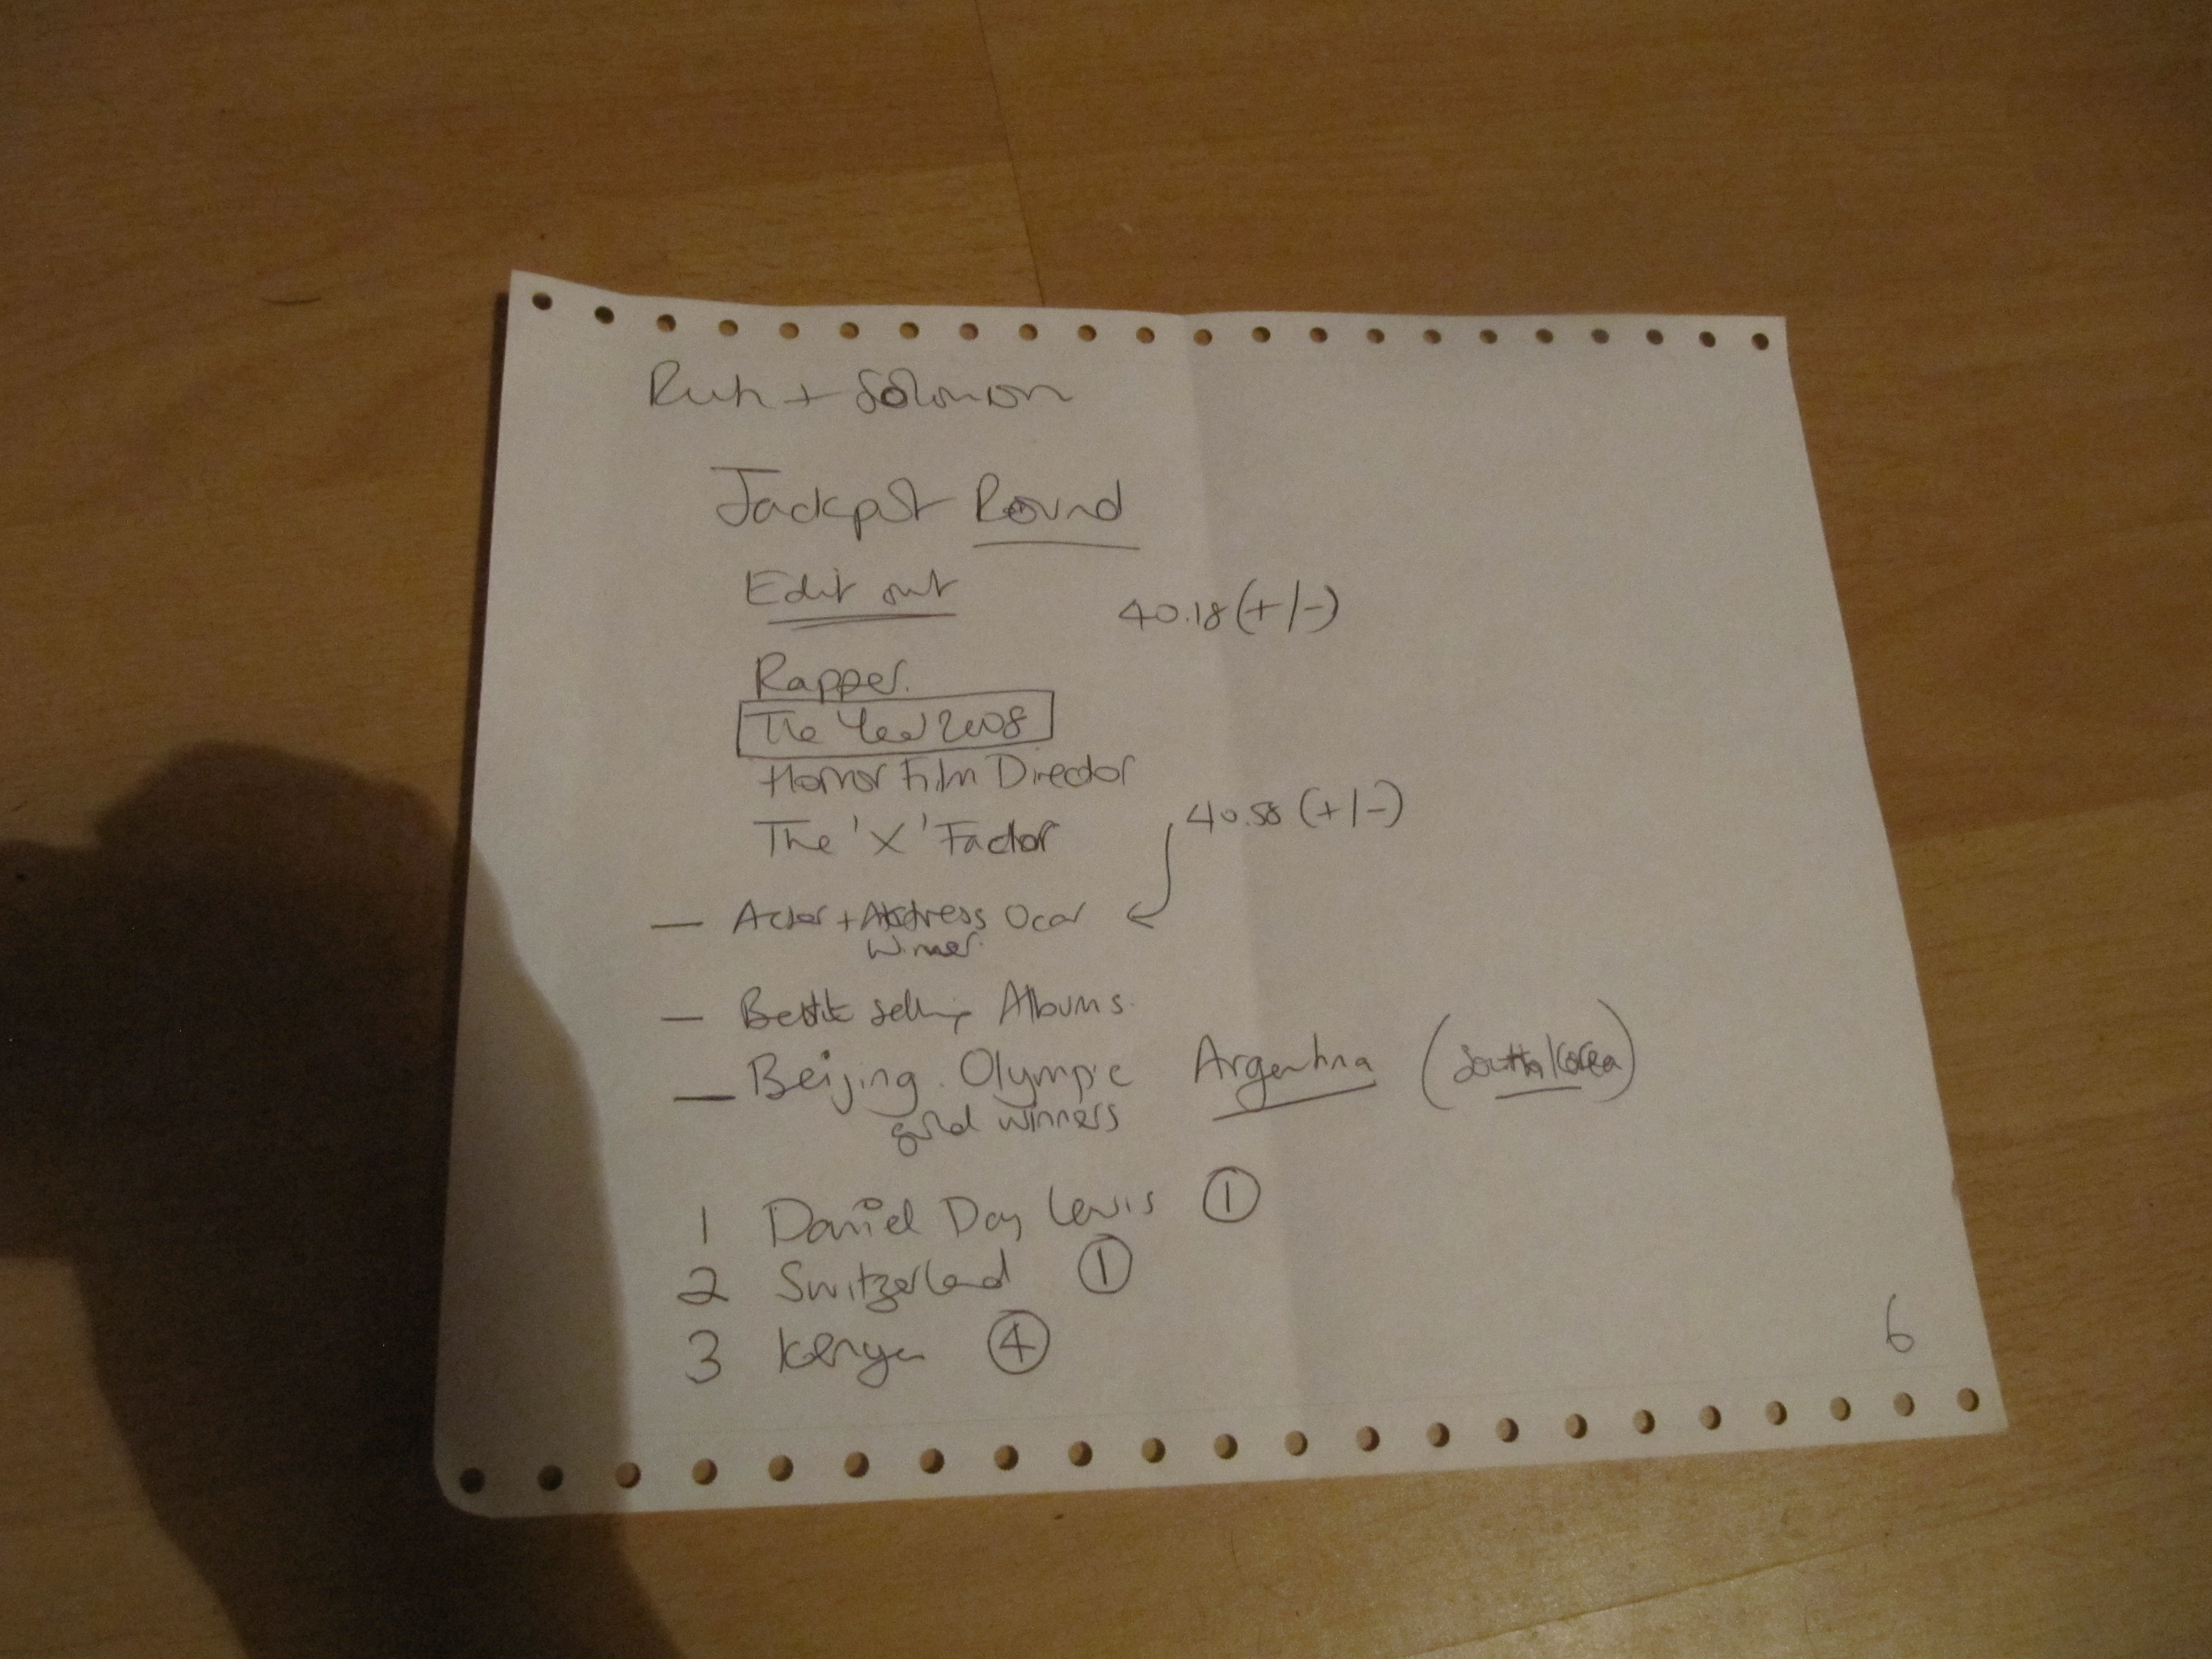 Ruth + Solomon
Jackpot Round
Edit out
40.18 (+/-)
Rapper.
The Year 2008
Horror Film Director
40.58 (+/-)
The 'X' Factor
— Actor + Actress Ocar
Winner.
— Best selling Albums.
— Beijing. Olympic Argentina (South Korea)
gold winners
1 Daniel Day Lewis 1
2 Switzerland 1
3 Kenya 4
6